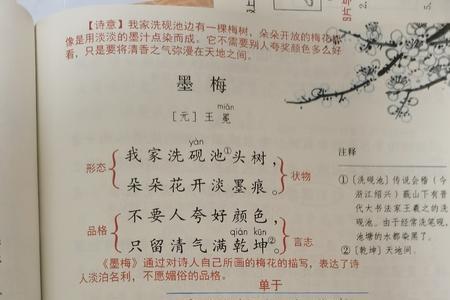 【诗意】我家洗砚池边有一棵梅树，朵朵开放的梅花
像是用淡淡的墨汁点染而成。它不需要别人夸奖颜色多么好
看，只是要将清香之气弥漫在天地之间。
墨梅
[元] 王冕
miǎn
yàn
我家洗砚池①头树，
朵朵花开淡墨痕。
形态
状物
不要人夸好颜色，
qián kūn
只留清气满乾坤②。
品格
言志
《墨梅》通过对诗人自己所画的梅花的描写，表达了诗
人淡泊名利，不愿媚俗的品格。
注释
①〔洗砚池〕传说会稽（今
浙江绍兴）蕺山下有晋
代大书法家王羲之的洗
砚池。由于经常洗笔砚，
池塘的水都染黑了。
②〔乾坤〕天地间。
单于